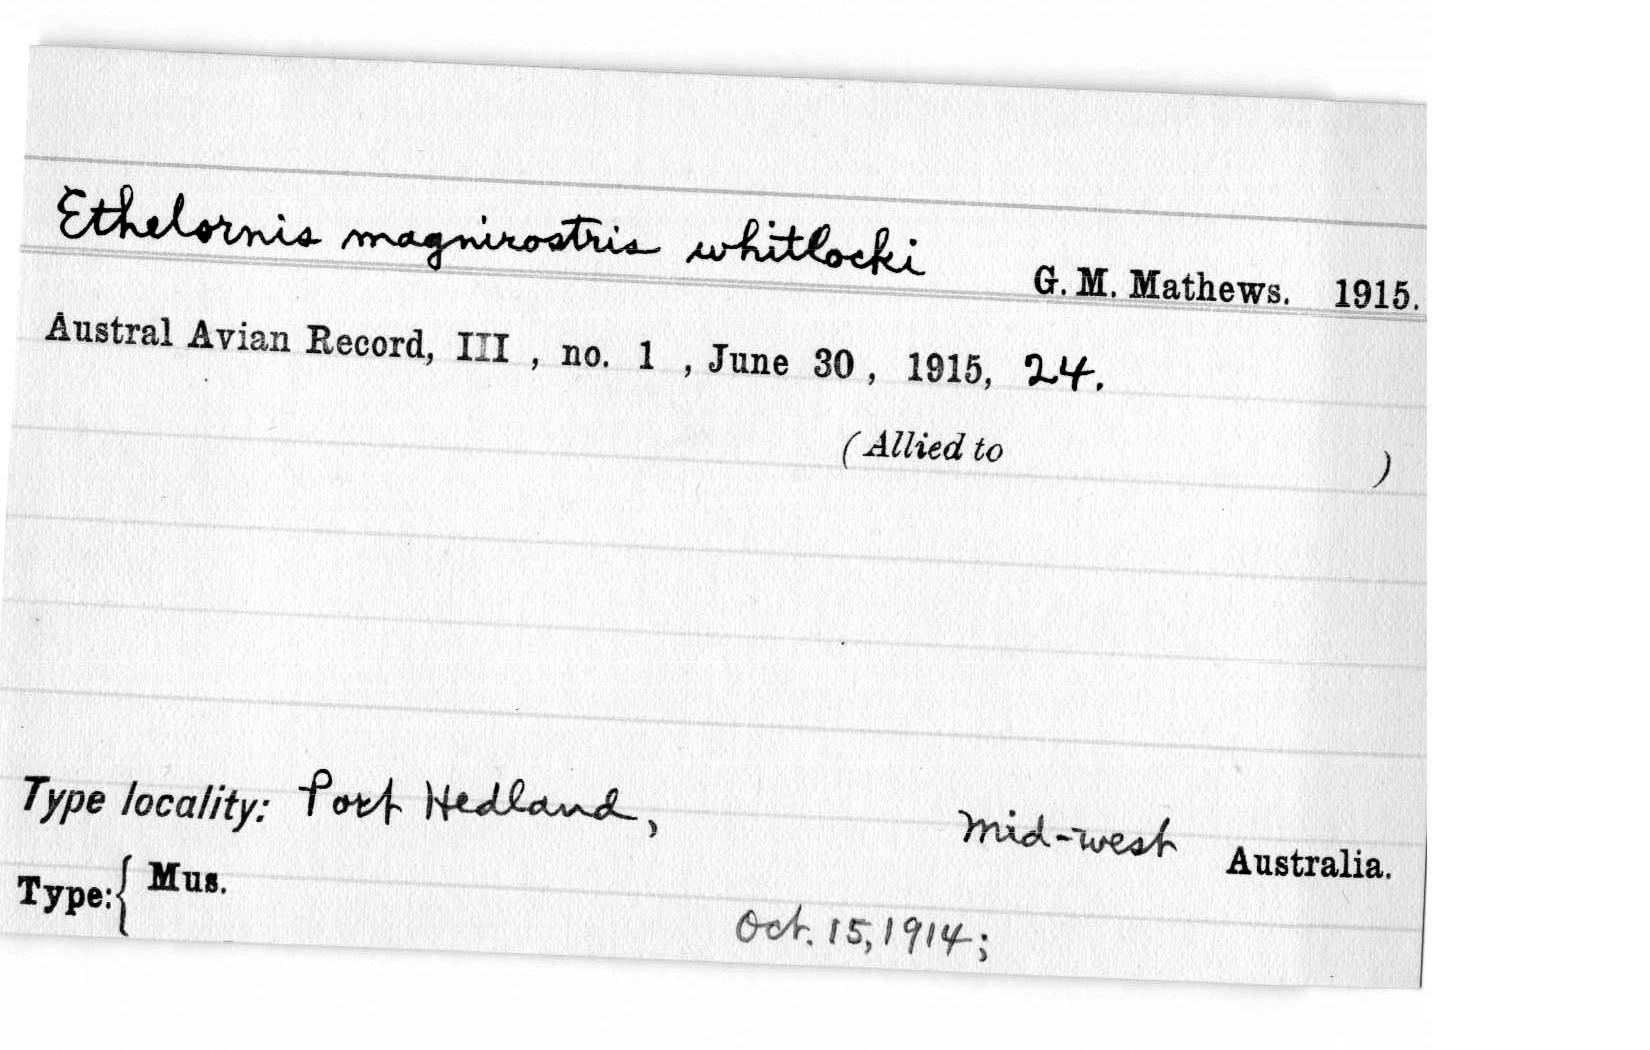 Ethelornis magnirostris whitlocki G. M. Mathews. 1915.
Austral Avian Record, III , no. 1 , June 30 , 1915, 24.
(Allied to )
Type locality: Port Hedland, Mid-west Australia.
Type:{ Mus.
Oct. 15, 1914;